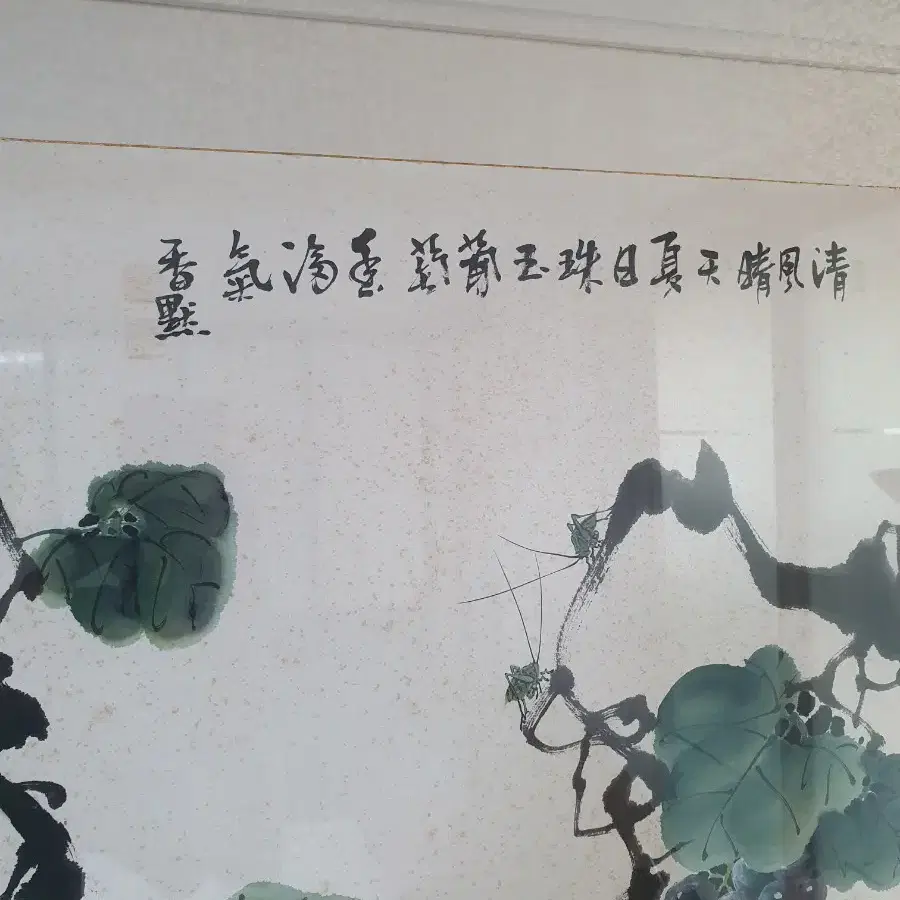 清風晴天夏日珠玉葡萄氣
香默